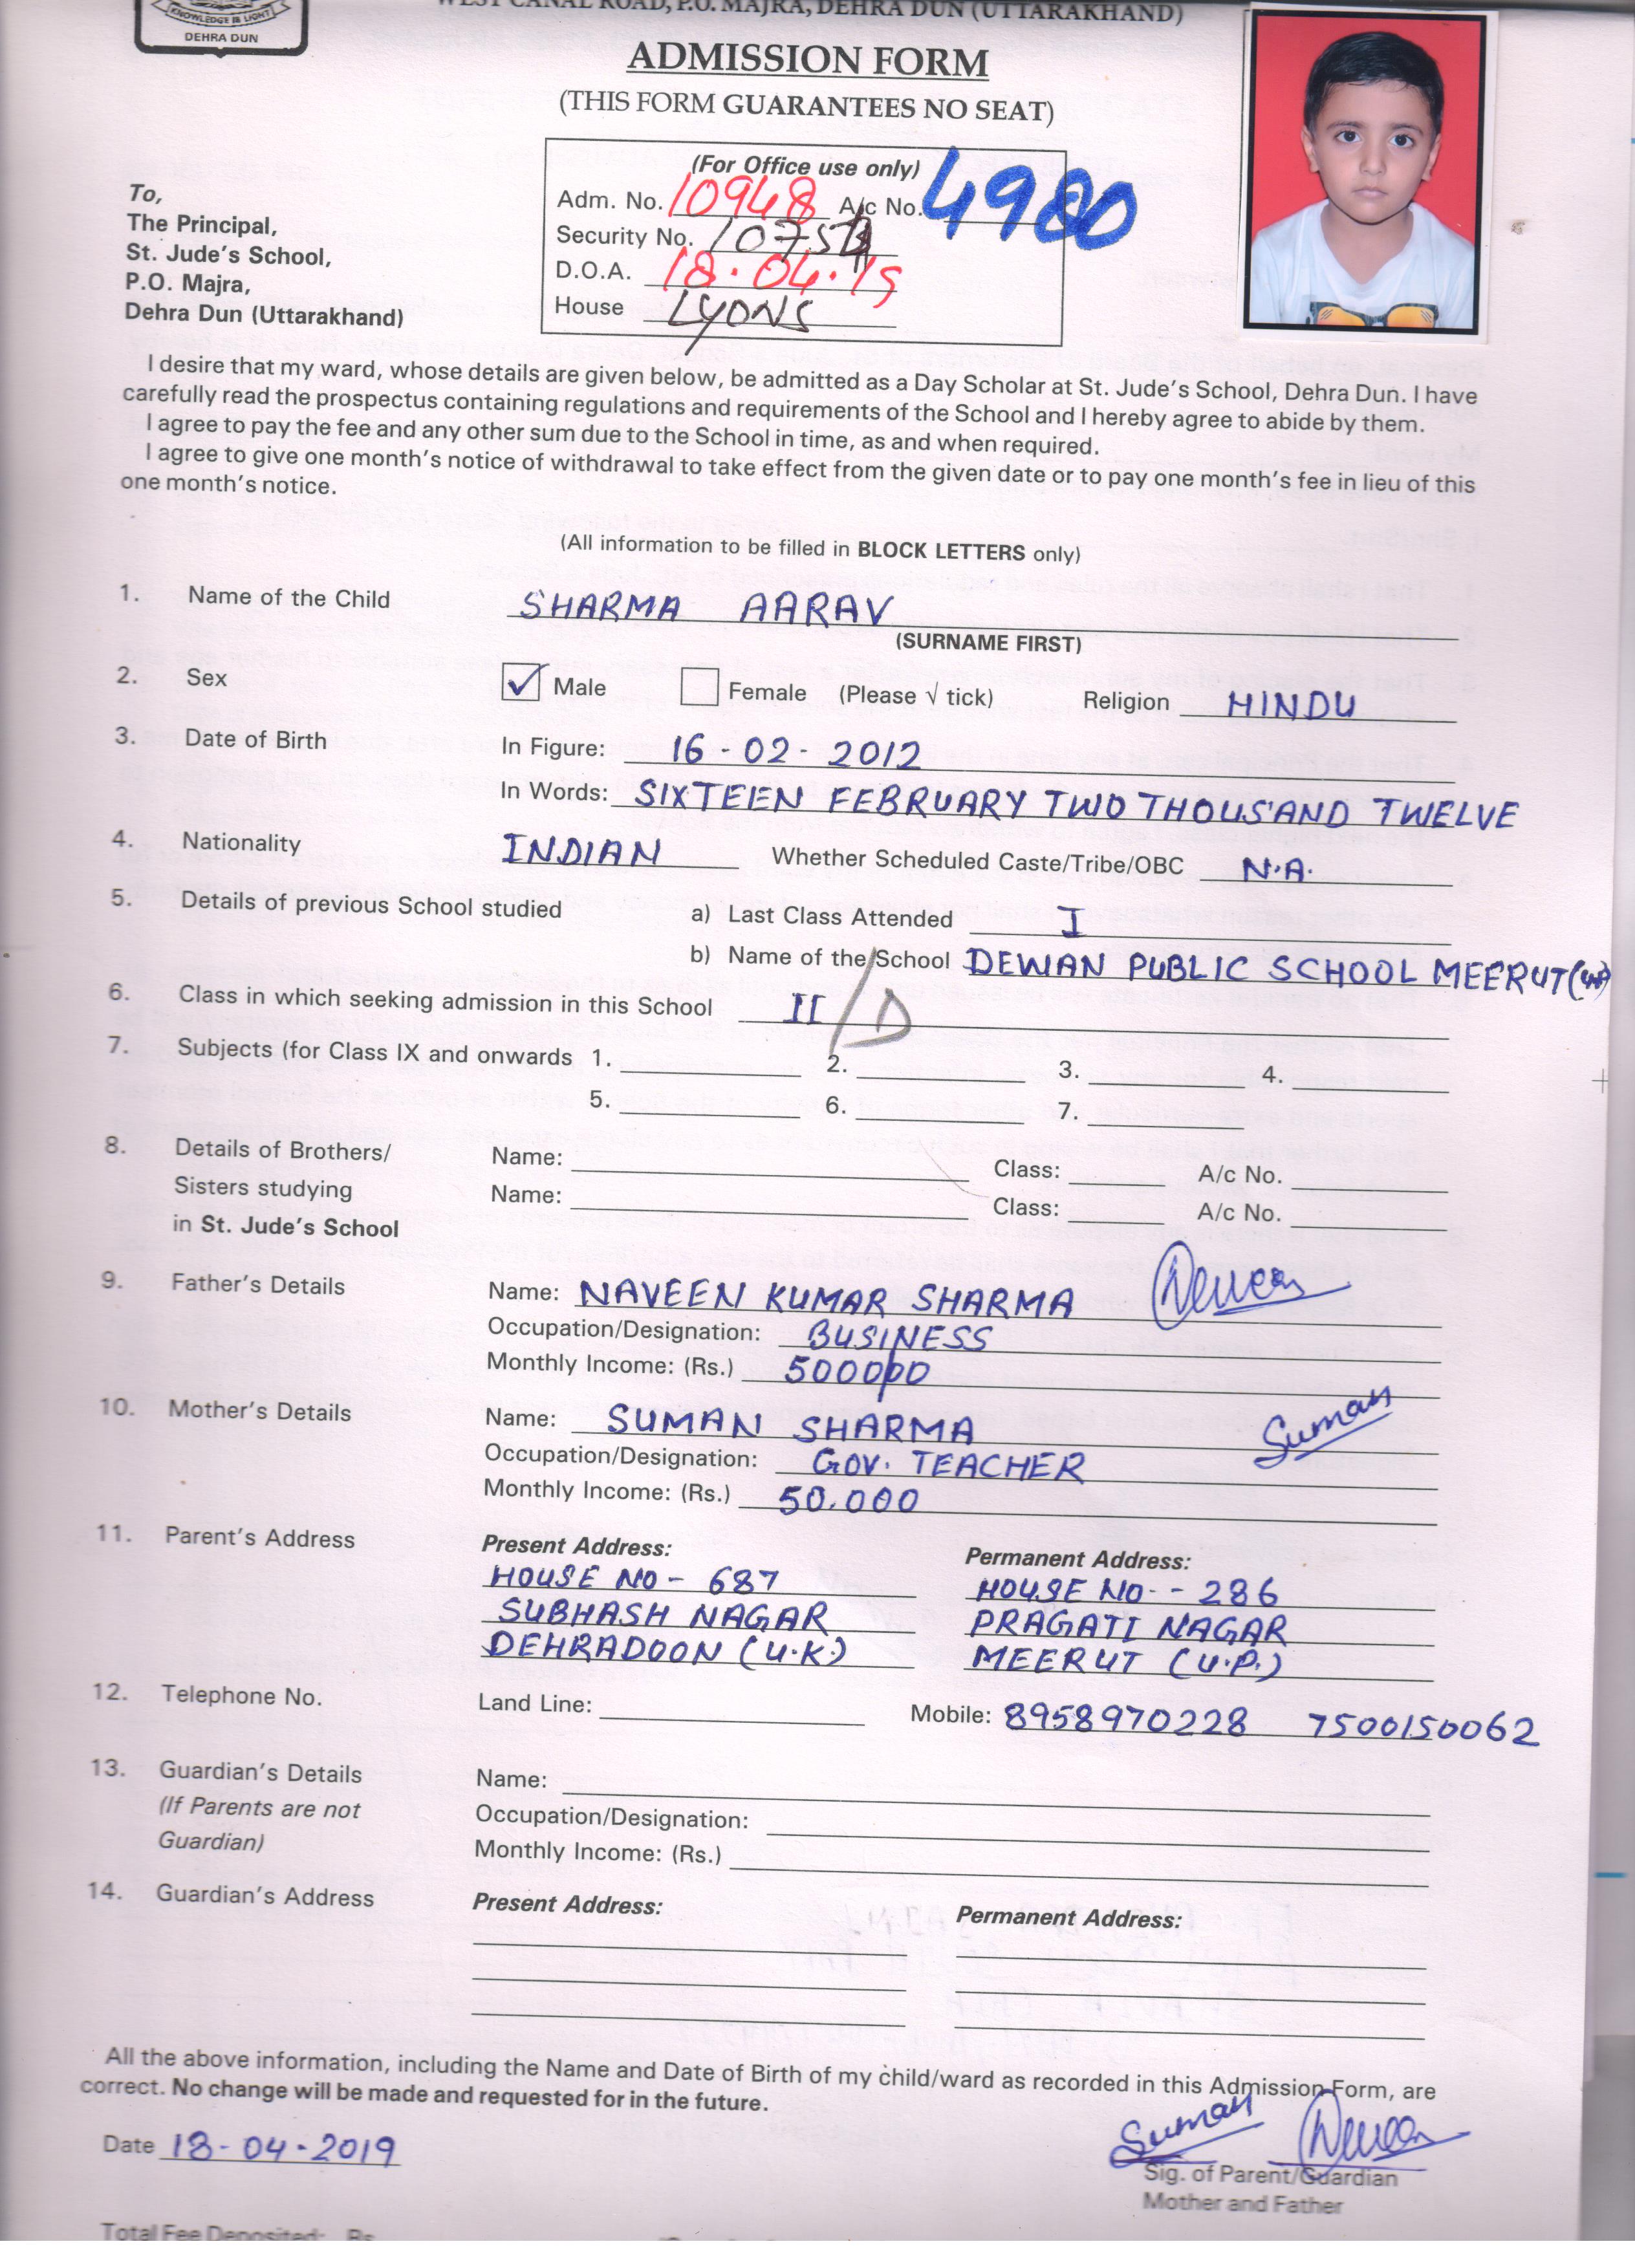 KNOWLEDGE IS LIGHT
DEHRA DUN
WEST CANAL ROAD, P.O. MAJRA, DEHRA DUN (UTTARAKHAND)
ADMISSION FORM
(THIS FORM GUARANTEES NO SEAT)
(For Office use only)
Adm. No. 10948 A/c No. 4980
Security No.
D.O.A. 18.04.19
House LYONS
To,
The Principal,
St. Jude's School,
P.O. Majra,
Dehra Dun (Uttarakhand)
I desire that my ward, whose details are given below, be admitted as a Day Scholar at St. Jude's School, Dehra Dun. I have
carefully read the prospectus containing regulations and requirements of the School and I hereby agree to abide by them.
I agree to pay the fee and any other sum due to the School in time, as and when required.
I agree to give one month's notice of withdrawal to take effect from the given date or to pay one month's fee in lieu of this
one month's notice.
(All information to be filled in BLOCK LETTERS only)
1. Name of the Child SHARMA AARAV
(SURNAME FIRST)
2. Sex ✓ Male Female (Please √ tick) Religion HINDU
3. Date of Birth In Figure: 16-02-2012
In Words: SIXTEEN FEBRUARY TWO THOUSAND TWELVE
4. Nationality INDIAN Whether Scheduled Caste/Tribe/OBC N.A.
5. Details of previous School studied a) Last Class Attended I
b) Name of the School DEWAN PUBLIC SCHOOL MEERUT
6. Class in which seeking admission in this School II/D
7. Subjects (for Class IX and onwards 1. 2. 3. 4.
5. 6. 7.
8. Details of Brothers/ Name: Class: A/c No.
Sisters studying Name: Class: A/c No.
in St. Jude's School
9. Father's Details Name: NAVEEN KUMAR SHARMA
Occupation/Designation: BUSINESS
Monthly Income: (Rs.) 500000
10. Mother's Details Name: SUMAN SHARMA Suman
Occupation/Designation: GOV. TEACHER
Monthly Income: (Rs.) 50.000
11. Parent's Address Present Address: Permanent Address:
HOUSE NO - 687 HOUSE NO - - 286
SUBHASH NAGAR PRAGATI NAGAR
DEHRADOON (U.K.) MEERUT (U.P.)
12. Telephone No. Land Line: Mobile: 8958970228 7500150062
13. Guardian's Details Name:
(If Parents are not Occupation/Designation:
Guardian) Monthly Income: (Rs.)
14. Guardian's Address Present Address: Permanent Address:
All the above information, including the Name and Date of Birth of my child/ward as recorded in this Admission Form, are
correct. No change will be made and requested for in the future.
Date 18-04-2019 Suman
Sig. of Parent/Guardian
Mother and Father
Total Fee Deposited: Rs.